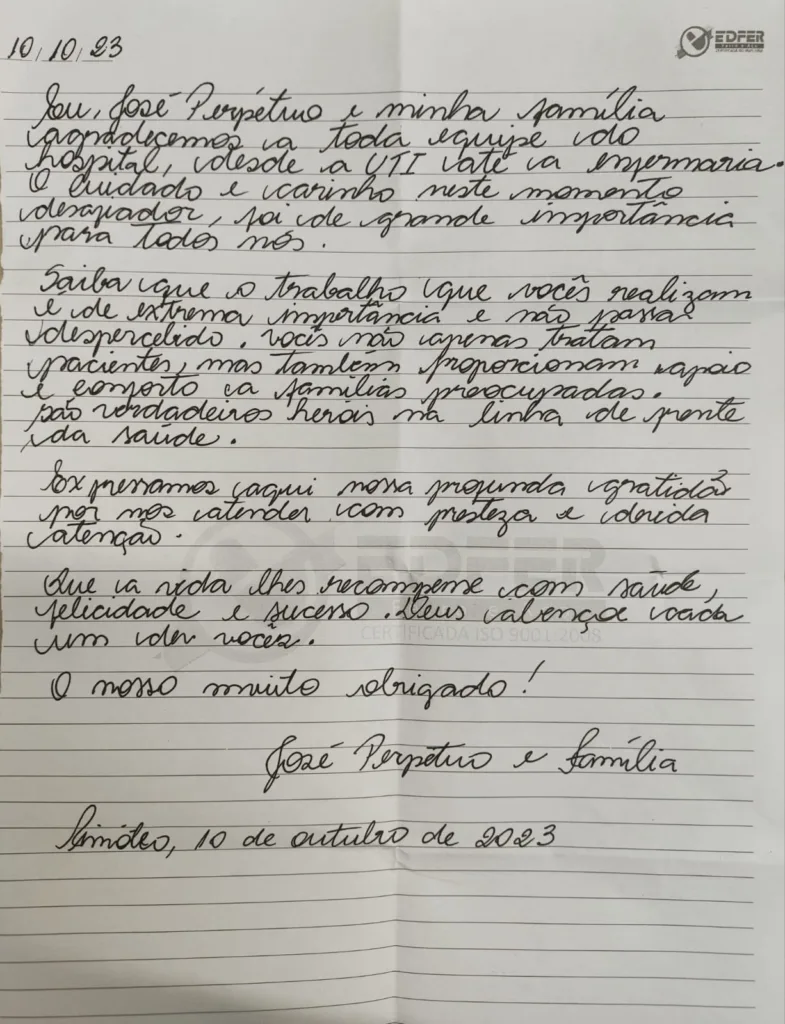 10/10/23
EDFER
Eu, José Perpétuo e minha família
agradecemos a toda equipe do
hospital, desde a UTI até a enfermaria.
O cuidado e carinho neste momento
desafiador, foi de grande importância
para todos nós.
Saiba que o trabalho que vocês realizam
é de extrema importância e não passa
despercebido. Vocês não apenas tratam
pacientes, mas também proporcionam apoio
e conforto a famílias preocupadas.
São verdadeiros heróis na linha de frente
da saúde.
Expressamos aqui nossa profunda gratidão
por nos atender com presteza e devida
atenção.
EDFER
Que a vida lhes recompense com saúde,
felicidade e sucesso. Deus abençoe cada
um de vocês.
CERTIFICADA ISO 9001:2008
O nosso muito obrigado!
José Perpétuo e família
Timóteo, 10 de outubro de 2023